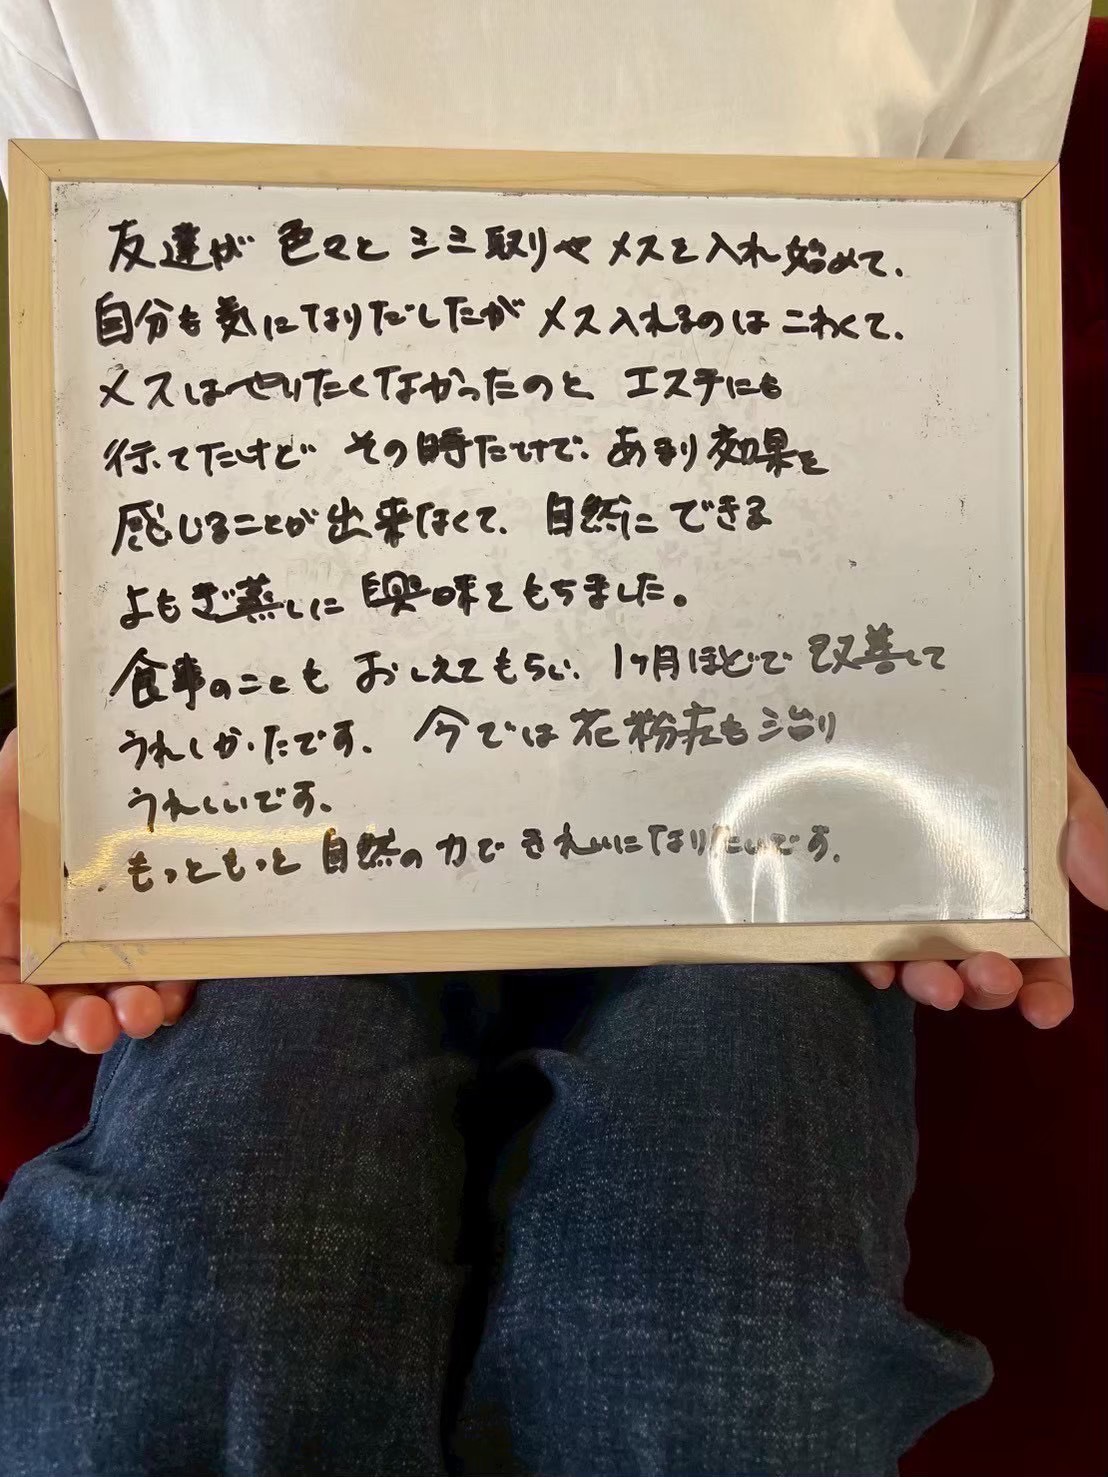 友達が 色々と シミ取りや メスを入れ始めて、
自分も気になりだしたが メス入れるのは こわくて、
メスはやりたくなかったのと エステにも
行ってたけど その時だけで、あまり効果を
感じることが出来なくて、自然にできる
よもぎ蒸しに 興味をもちました。
食事のことも おしえてもらい、1ヶ月ほどで 改善して
うれしかったです。今では花粉症も治り
うれしいです。
もっともっと 自然の力で きれいになりたいです。